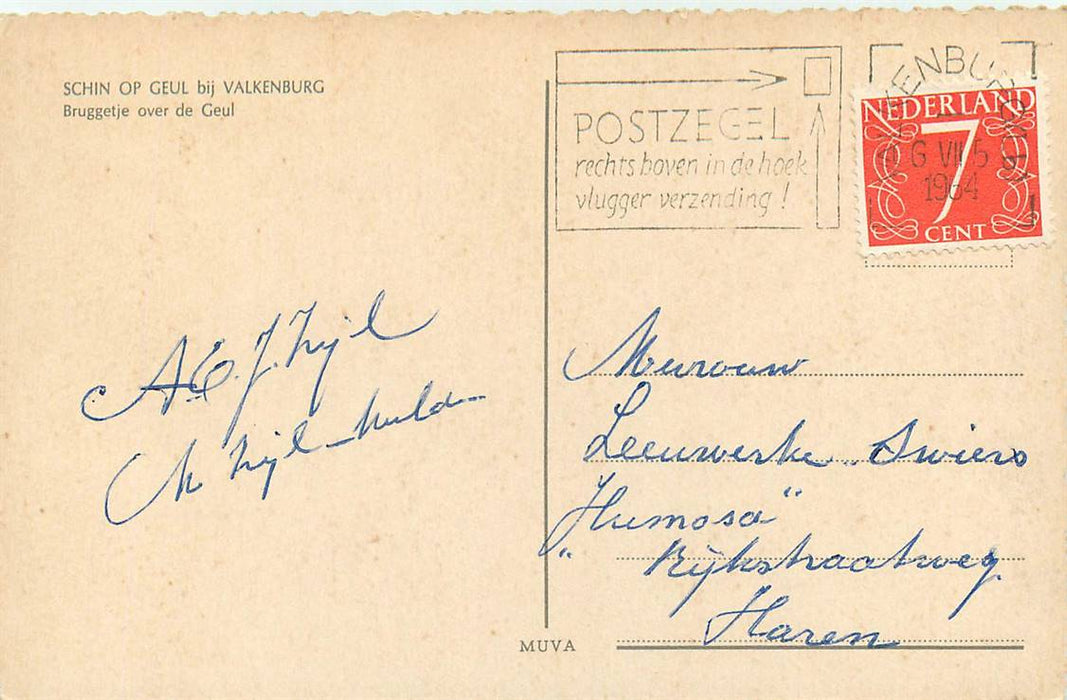 SCHIN OP GEUL bij VALKENBURG
Bruggetje over de Geul
POSTZEGEL
rechts boven in de hoek
vlugger verzending!
NEDERLAND
7
CENT
1964
A.E.J. Zijl
M Zijl-Mulder
Mevrouw
Leeuwerke-Swiers
"Humosa"
Rijksstraatweg
Haren
MUVA